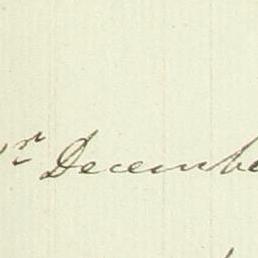 1st Decembe